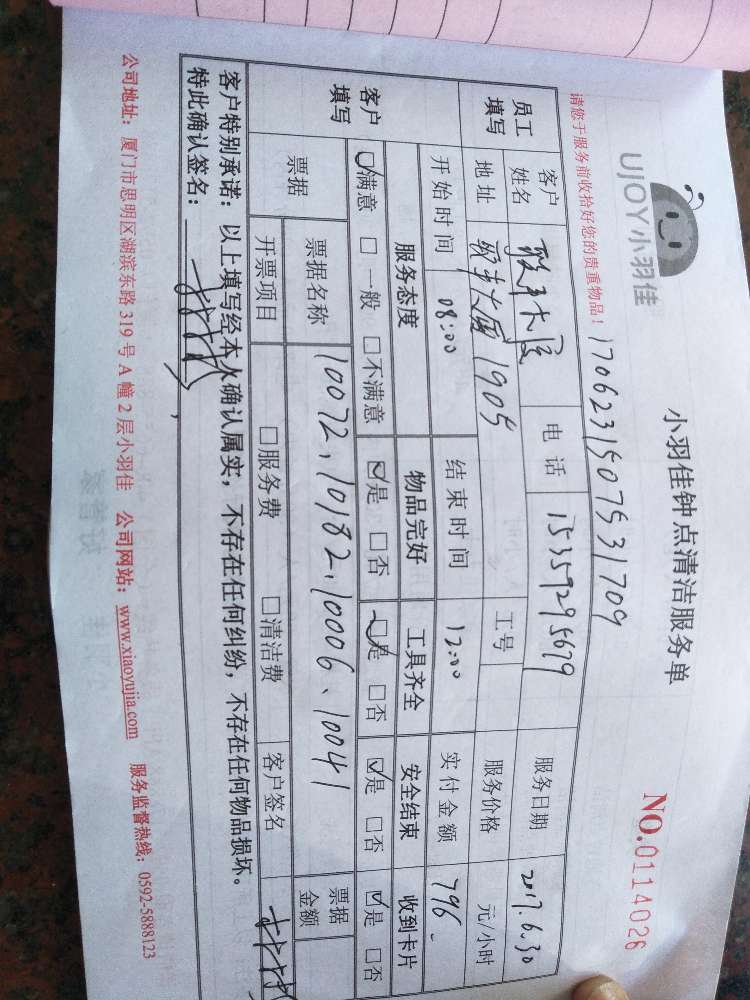 UJOY小羽佳
小羽佳钟点清洁服务单
NO.0114026
请您于服务前收拾好您的贵重物品！
170623150753 1709
员工填写 客户姓名 电话 15359295679 服务日期 2017.6.30
地址 1905 工号 服务价格 元/小时
开始时间 08:00 结束时间 12:00 实付金额 796-
客户填写 服务态度 物品完好 工具齐全 安全结束 收到卡片
☑满意 □一般 □不满意 ☑是 □否 ☑是 □否 ☑是 □否 ☑是 □否
票据 票据名称 10072、10182、10006、10041 票据金额
开票项目 □服务费 □清洁费 客户签名
客户特别承诺：以上填写经本人确认属实，不存在任何纠纷，不存在任何物品损坏。
特此确认签名：
公司地址：厦门市思明区湖滨东路 319 号 A 幢 2 层小羽佳 公司网站：www.xiaoyujia.com 服务监督热线：0592-5888123